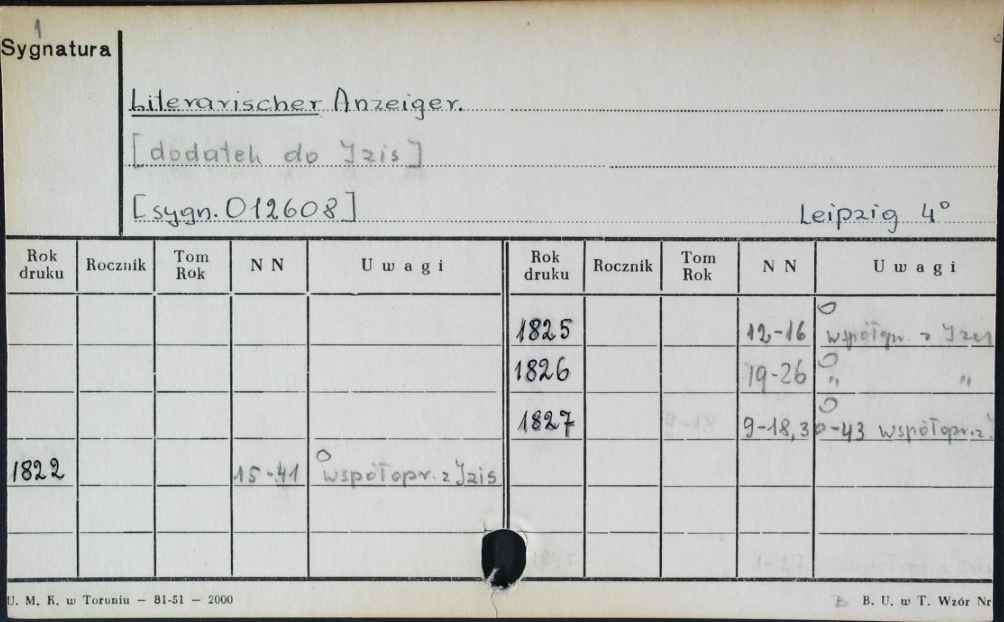 1
Sygnatura
Literarischer Anzeiger.
[dodatek do Izis]
[sygn. 012608]
Leipzig 4°
Rok druku Rocznik Tom Rok N N Uwagi
Rok druku Rocznik Tom Rok N N Uwagi
1825 12-16 współopr. z Izis
1826 19-26 " "
1827 9-18, 30-43 współopr. z
1822 15-41 współopr. z Izis
U. M. K. w Toruniu — 81-51 — 2000
B. U. w T. Wzór Nr